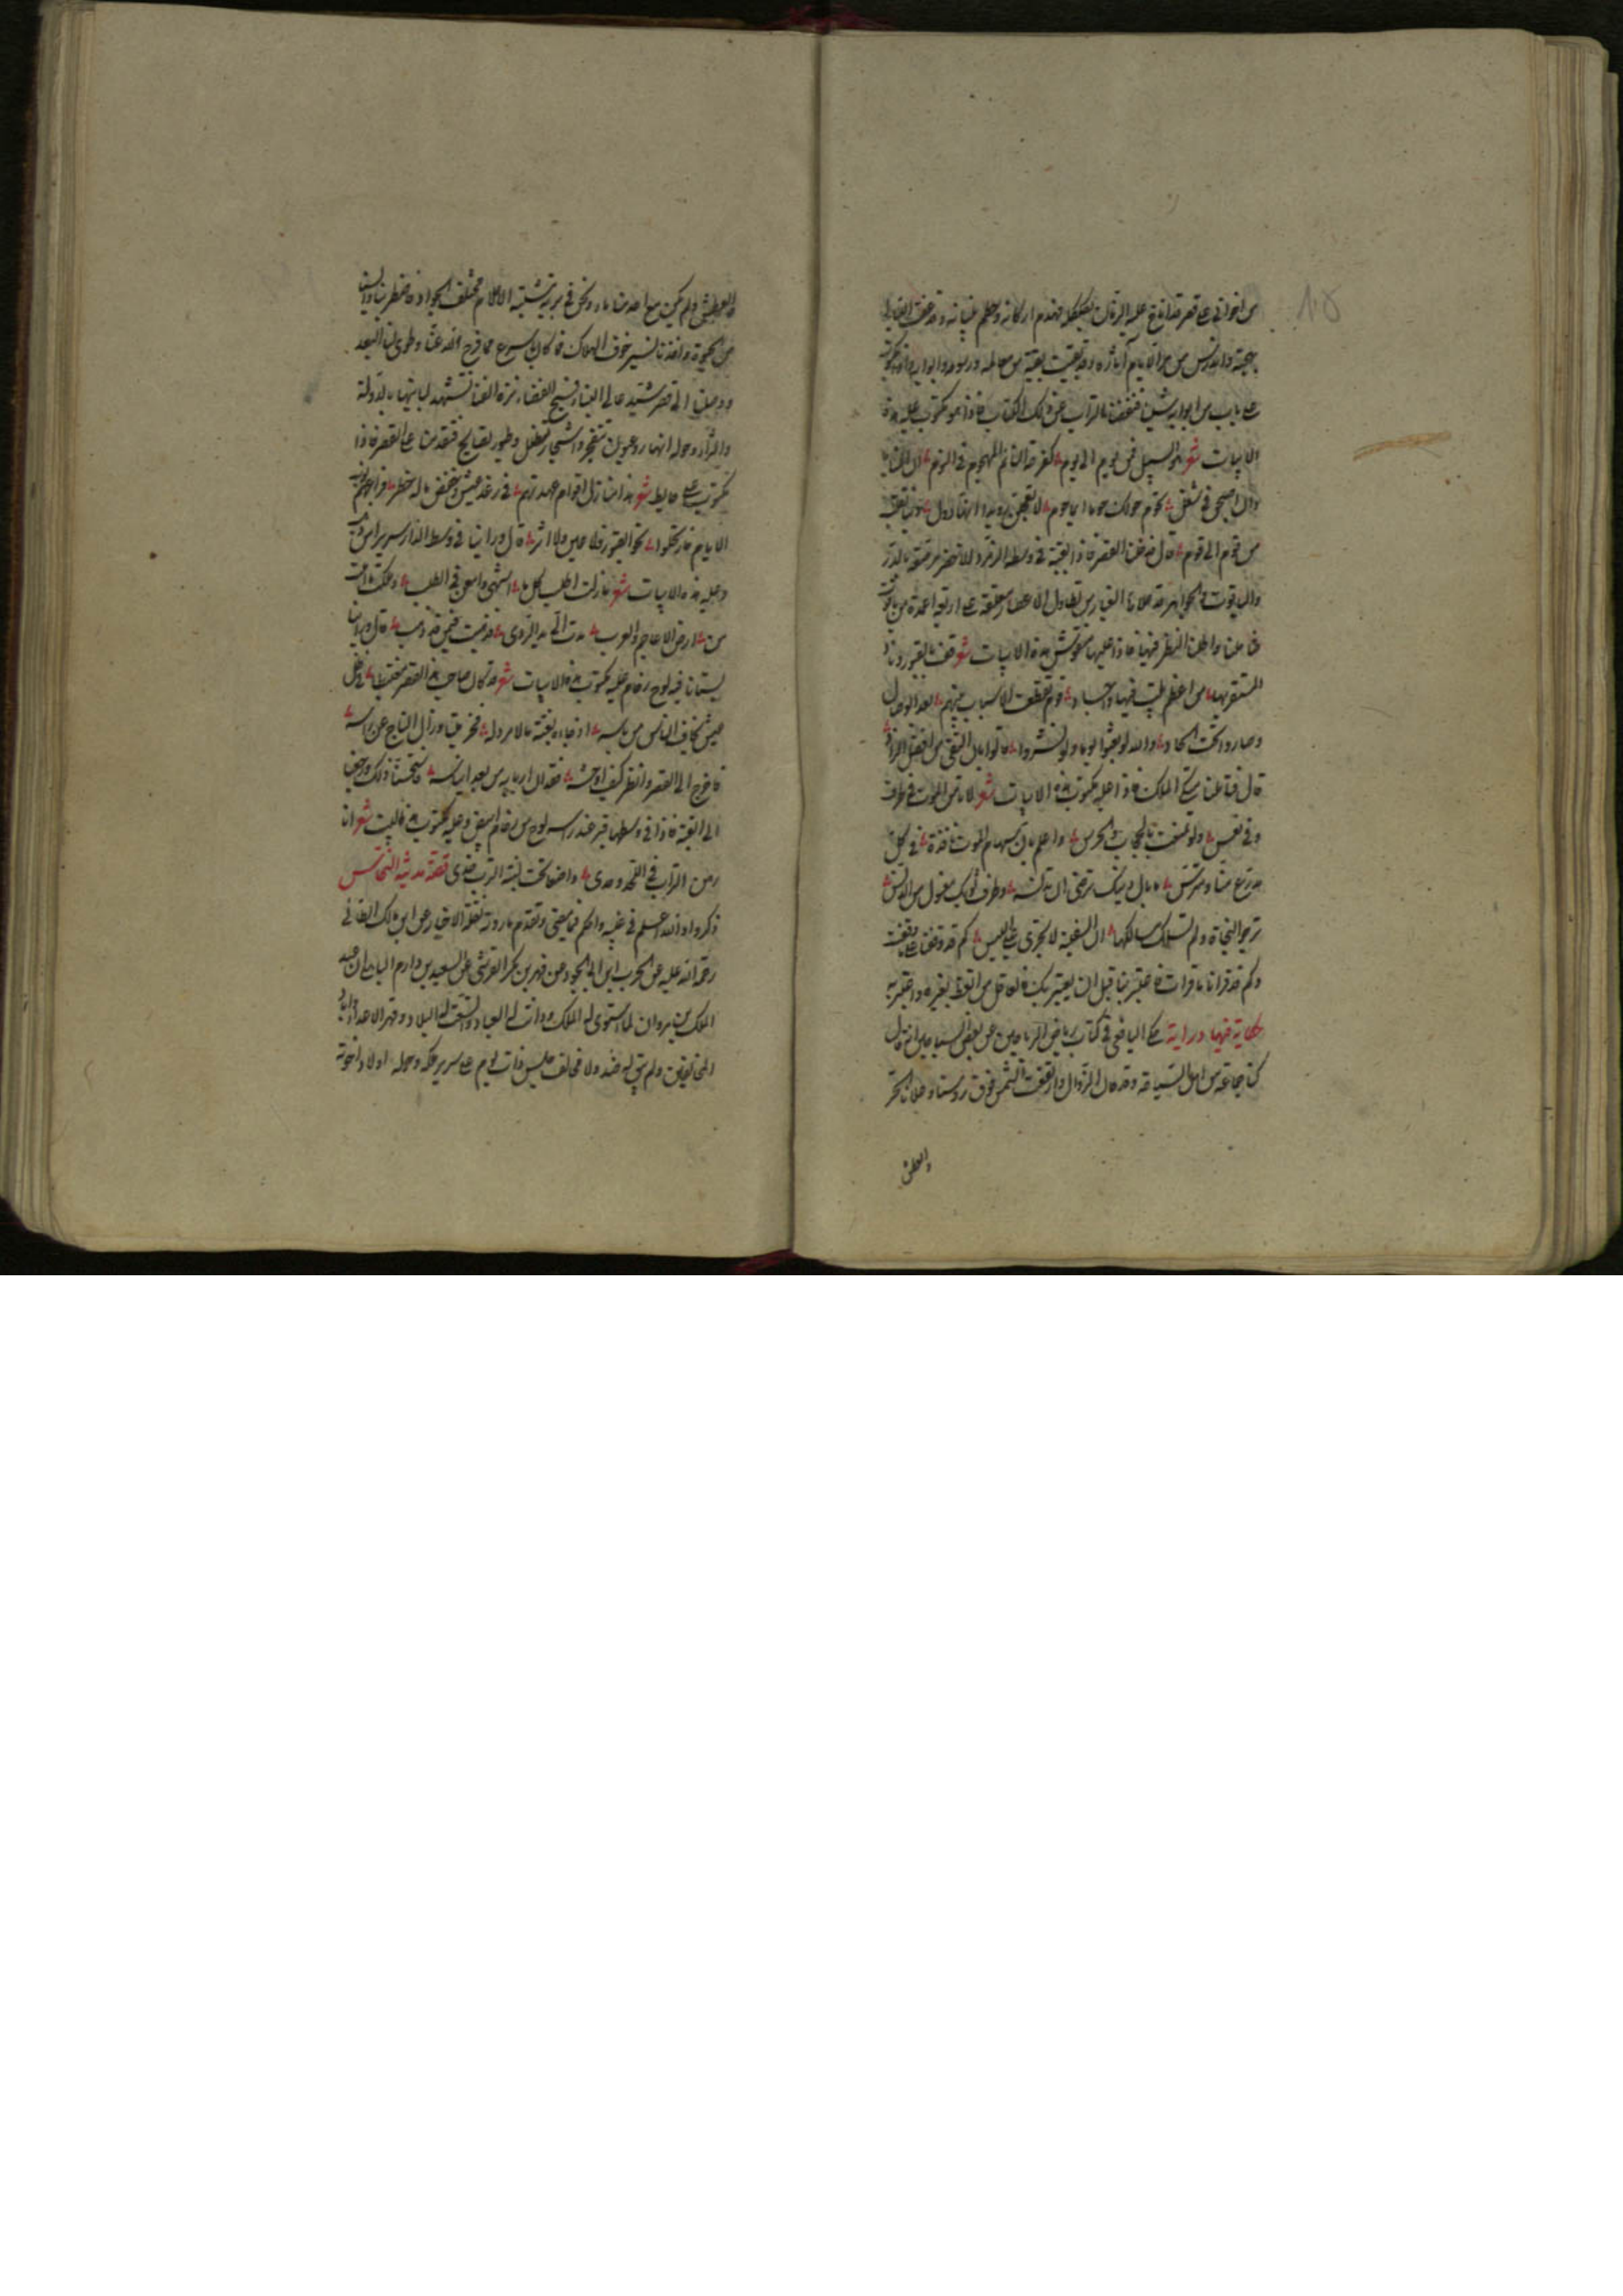 من اخوانى على قصر قد اناخ عليه الزمان بكلكله فهدم اركانه وحطم بنيانه وقد عفت الليالى
بهجته واندرس من مر الايام آثاره وقد بقيت بقية من معالمه ورسومه وابوابه واذا مكتوب
على باب من ابوابه شىء فنفضنا التراب عن ذلك الكتاب فاذا هو مكتوب عليه هذه
الابيات شعر هو السبيل فمن يوم الى يوم كفرحة النائم المهجوم فى النوم ان المنايا
وان اصبحت فى شغل تحوم حولك حوما ايما حوم لا تعجلن رويدا انها دول دنيا تنقل
من قوم الى قوم قال فدخلنا القصر فاذا بقبة فى وسطه من الزمرد الاخضر مرصعة بالدر
والياقوت والجواهر
فتأملنا واطلنا النظر فيها فاذا عليها منقوش هذه الابيات شعر قف بالقبور وناد
المستقر بها من اعظم بليت فيها واجساد قوم تقطعت الاسباب بينهم بعد الوصال
وصاروا تحت الحاد والله لو بعثوا يوما ولو نشروا قالوا بان التقى من افضل الزاد
قال فتأملنا سرير الملك فاذا عليه مكتوب هذه الابيات شعر لا تأمن الموت فى طرف
وفى نفس ولو تمنعت بالحجاب والحرس واعلم بان سهام الموت نافذة فى كل
مدرع منا ومترس ما بال دينك ترضى ان تدنسه وطرف ثوبك مغسول من الدنس
ترجو النجاة ولم تسلك مسالكها ان السفينة لا تجرى على اليبس كم قد وقفنا كما وقفت
وكم قد قرانا ما قرات فاعتبر بنا قبل ان يعتبر بك فالعاقل من اتعظ بغيره واعتبر به
حكاية فيها دراية حكى اليافعى فى كتاب رياض الرياحين عن بعض السياحين انه قال
كنا جماعة من اهل السياحة وقد حان الزوال وارتفعت الشمس فوق روسنا وعلانا الحر
والعطش
والعطش ولم يكن مع احد منا ماء ونحن فى برية مختلفة الجواد فاضطربنا وايسنا
من الحيوة واخذنا نسير خوف الهلاك فما كان باسرع مما فرج الله عنا وطوى لنا البعد
ووصلنا الى قصر مشيد عالى البناء فسيح الفضاء نزه الفنا تشهد لبانيها بالدولة
والثراء وحوله انهار وعيون تتفجر واشجار تظلل وطيور تصايح فتقدمنا الى القصر فاذا
مكتوب على حايط شعر هذى منازل اقوام عهدتهم فى رغد عيش وخفض ماله خطر
الايام فارتحلوا نحو القبور فلا عين ولا اثر قال وراينا فى وسط الدار سريرا من ذهب
وعليه هذه الابيات شعر ما زلت اطلب كل ما اشتهى وامعن فى الطلب وملكت ما احببت
من ارض الاعاجم والعرب مدت الى يد الردى فذهبت فيمن قد ذهب قال وراينا
بستانا فيه لوح رخام عليه مكتوب هذه الابيات شعر قد كان صاحب هذا القصر مغتبطا فى ظل
عيش يخاف الناس من باسه اذ جاءه بغتة ما لا مرد له فخر ميتا وزال التاج عن راسه
فاخرج الى القصر وانظر كيف اوحشه فقدان اربابه من بعد ايناسه فاستحسنا ذلك ورجعنا
الى القبة فاذا فى وسطها قبر عند راسه لوح من رخام ابيض وعليه مكتوب هذا البيت شعر انا
رهن التراب فى اللحد وحدى واضعا تحت لبنة الترب خدى قصة مدينة النحاس
ذكروا والله اعلم فى غيبه واحكم فيما يمضى وتقدم ما روته نقلة الاخبار عن ابن مالك الطائى
رحمة الله عليه عن الحرب ابن ابى الجود عن فهر بن بكر القرشى عن السعيد بن دارم اليا ان عبد
الملك بن مروان لما استوى له الملك ودانت له العباد واتسعت له البلاد وقهر الاعداء واباد
المخالفين ولم يبق له ضد ولا مخالف جلس ذات يوم على سرير ملكه وحوله اولاده اخوته